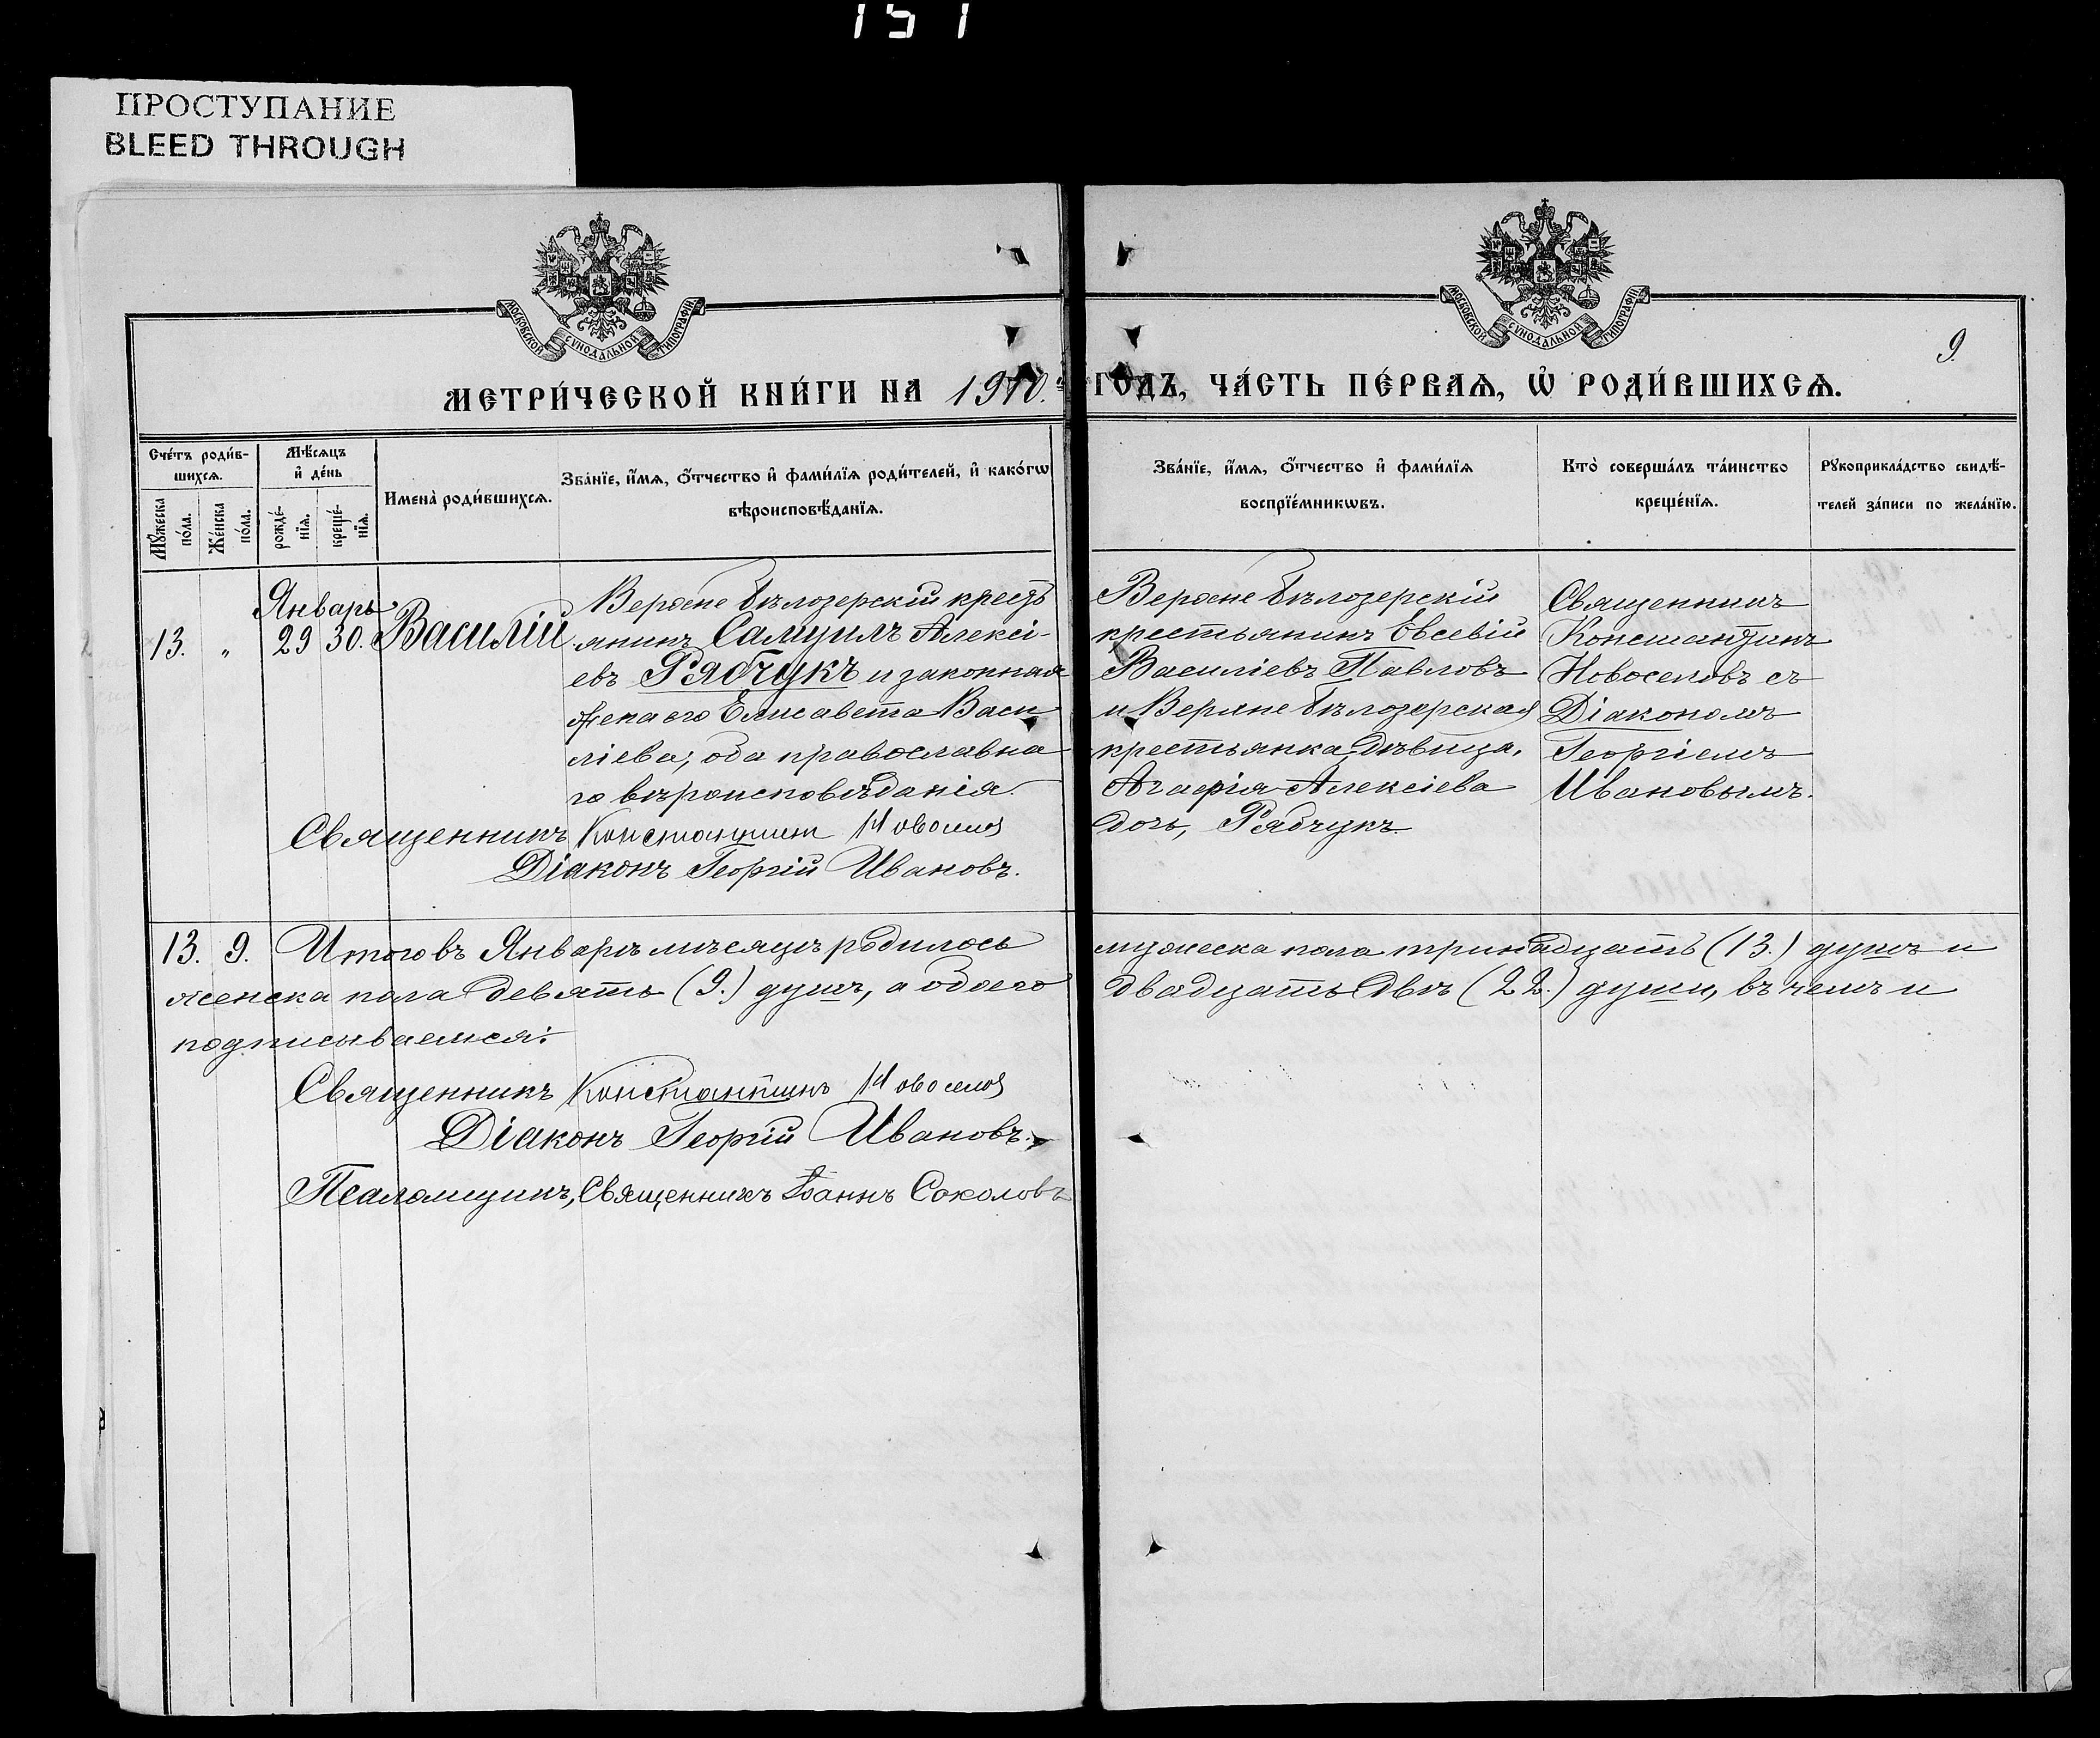 151
ПРОСТУПАНИЕ
BLEED THROUGH
МОСКОВСКОЙ СѴНОДАЛЬНОЙ ТИПОГРАФІИ
МОСКОВСКОЙ СѴНОДАЛЬНОЙ ТИПОГРАФІИ
9
МЕТРИ́ЧЕСКОЙ КНИ́ГИ НА 1910. ГОДЪ, ЧА́СТЬ ПЕ́РВАЯ, Ѡ҆ РОДИ́ВШИХСЯ.
Сче́тъ роди́в-
шихся.
Мꙋ́жеска по́ла.
Же́нска по́ла.
Мѣ́сяцъ
и҆ де́нь
рожде́-
нїя.
креще́-
нїя.
Имена̀ роди́вшихся.
Зва́нїе, и҆́мя, ѻ҆́тчество и҆ фами́лїя роди́телей, и҆ како́гѡ
вѣроисповѣ́данїя.
Зва́нїе, и҆́мя, ѻ҆́тчество и҆ фами́лїя
воспрїе́мникѡвъ.
Кто̀ соверша́лъ та́инство
креще́нїя.
Рꙋкоприкла́дство свидѣ́-
телей за́писи по жела́нїю.
Январь
13. „ 29 30. Василій
Верхне Бѣлозерскій кресть
янинъ Самуилъ Алексі-
евъ Рябчукъ и законная
жена его Елисавета Васи
ліева, оба православна
го вѣроисповѣданія.
Верхне Бѣлозерскій
крестьянинъ Евсевій
Василіевъ Павловъ
и Верхне Бѣлозерская
крестьянка дѣвица,
Агафія Алексіева
дочь, Рябчукъ.
Священникъ
Константинъ
Новоселовъ съ
Діакономъ
Георгіемъ
Ивановымъ.
Священникъ Константинъ Новоселов
Діаконъ Георгій Ивановъ.
13. 9. Итого въ Январѣ мѣсяцѣ родилось мужеска пола тринадцать (13.) душъ и
женска пола девять (9.) душъ, а обоего двадцать двѣ (22.) души, въ чемъ и
подписываемся:
Священникъ Константинъ Новоселов
Діаконъ Георгій Ивановъ.
Псаломщикъ, Священникъ Іоаннъ Соколовъ